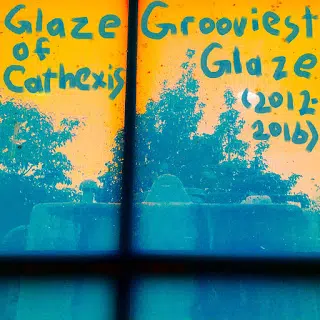 Glaze
of
Cathexis
Grooviest
Glaze
(2012-
2016)